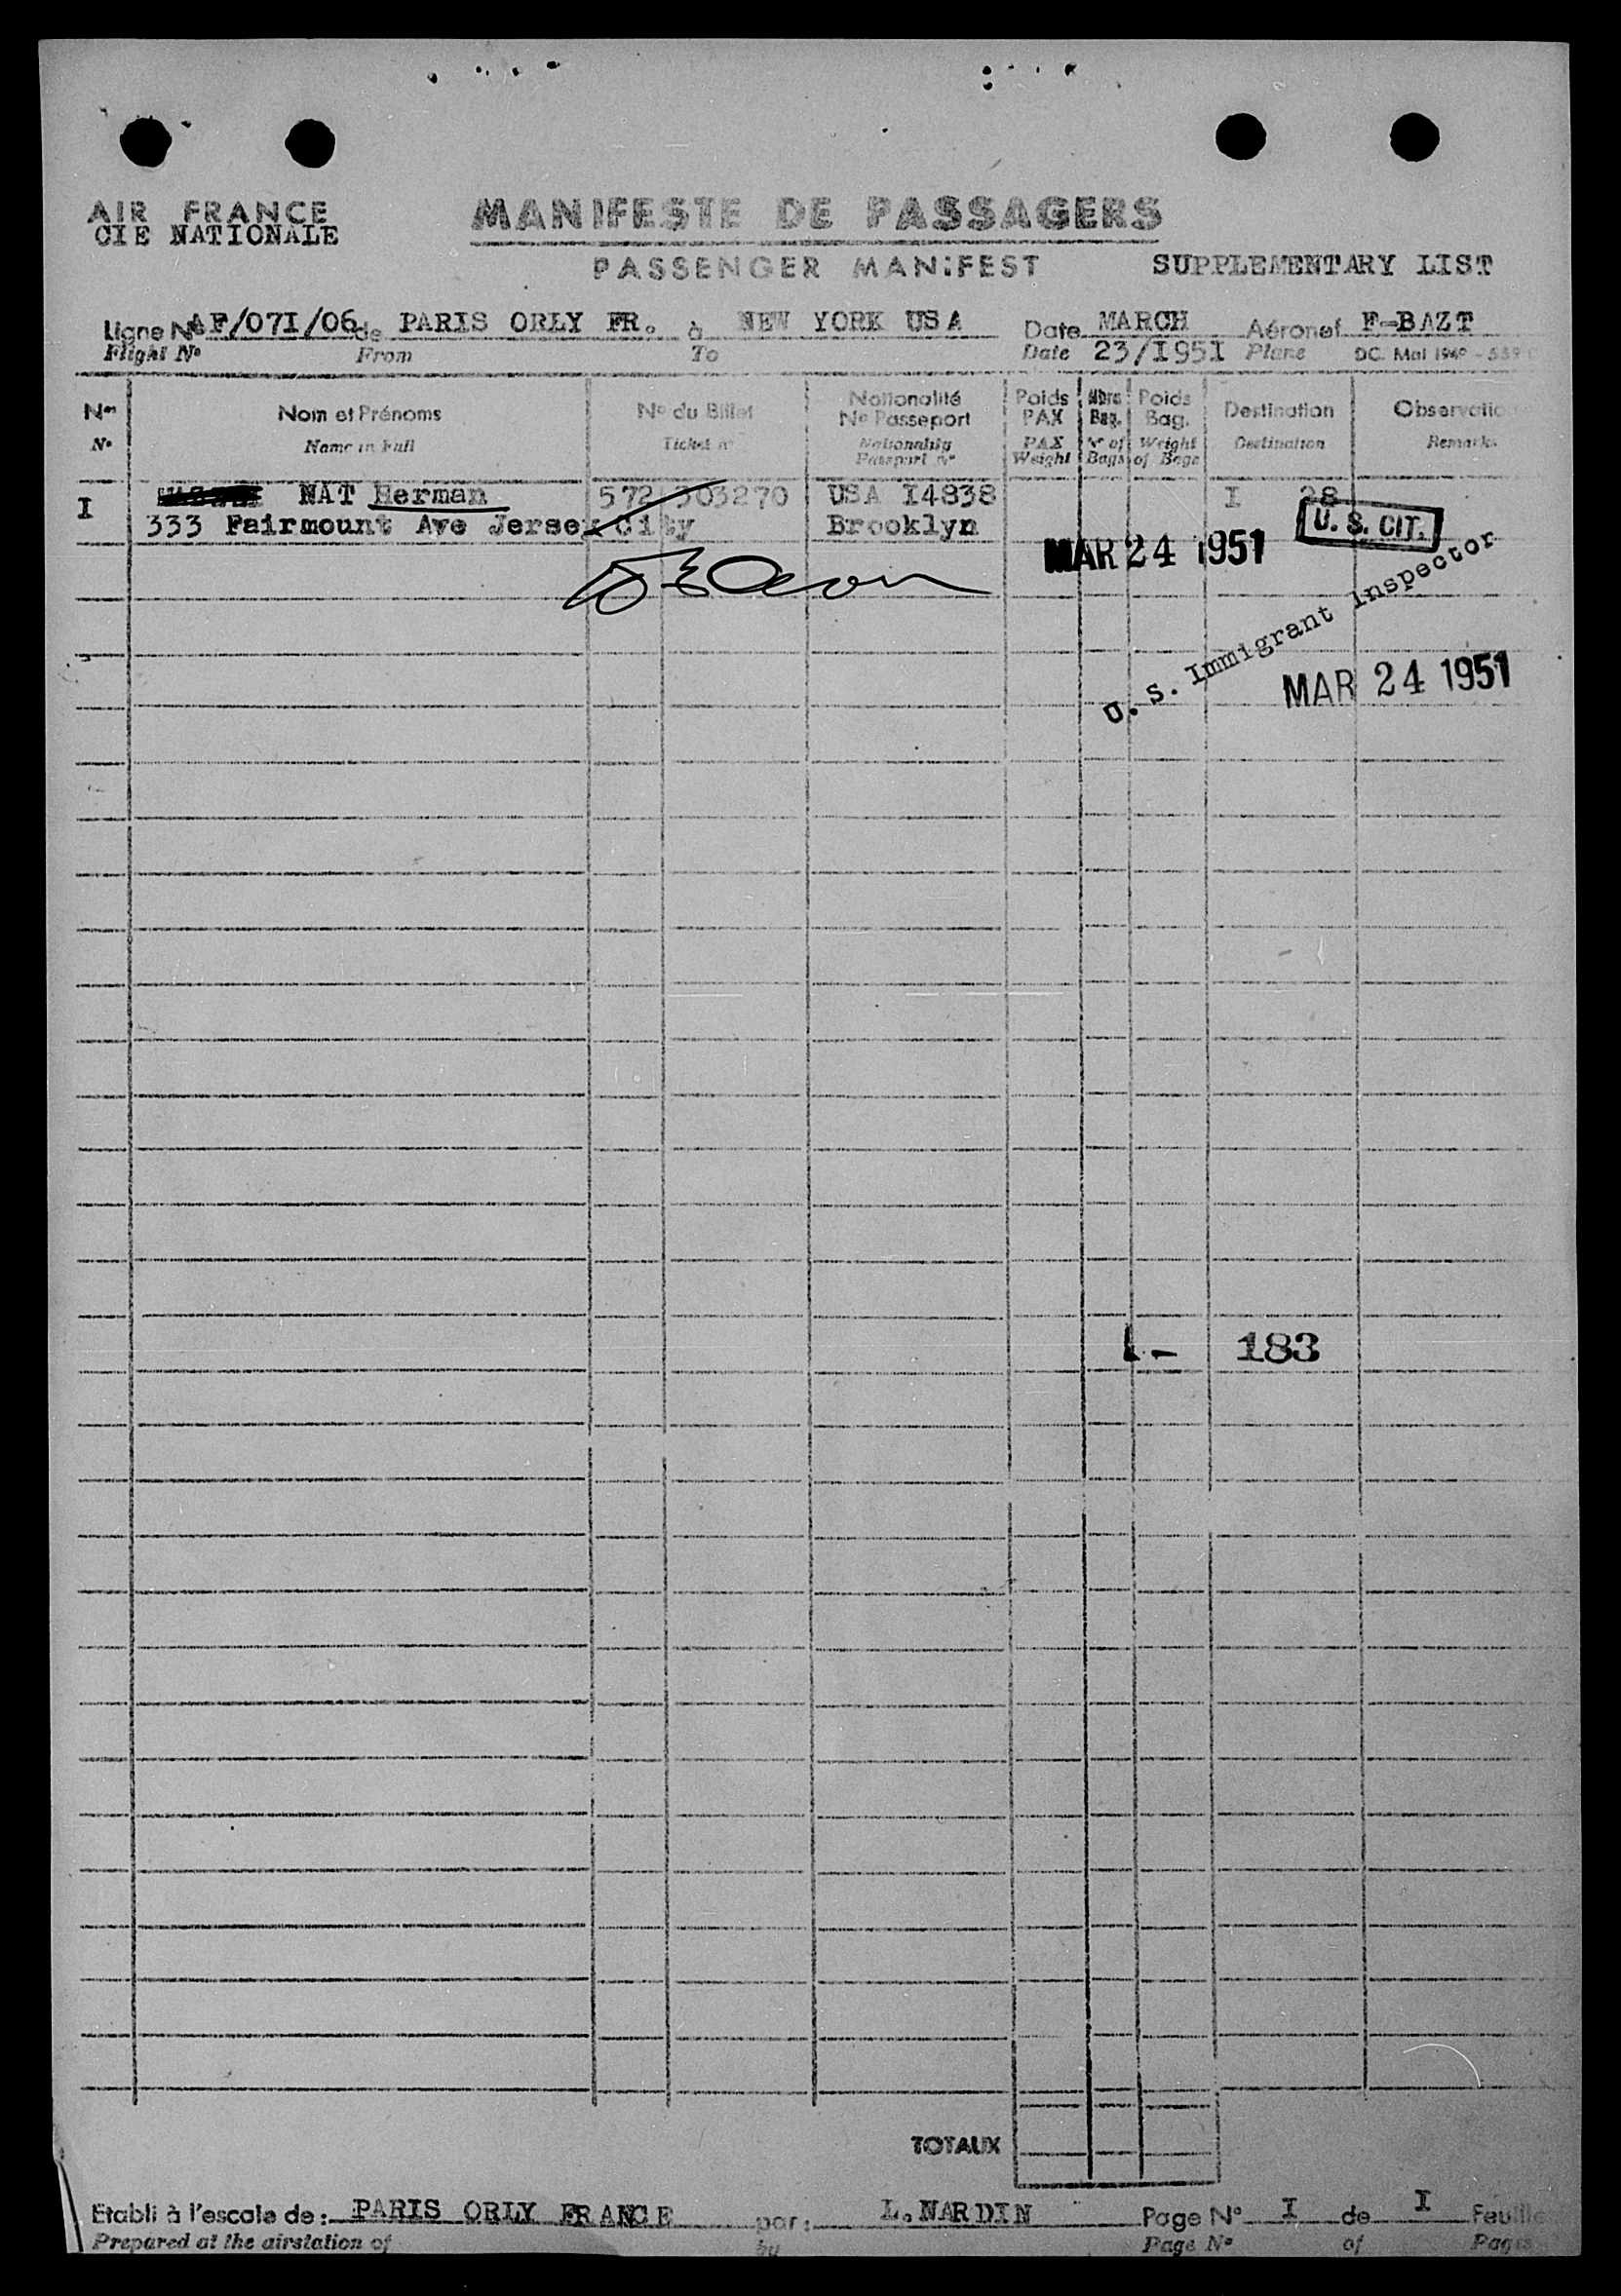 AIR FRANCE
CIE NATIONALE
MANIFESTE DE PASSAGERS
PASSENGER MANIFEST
SUPPLEMENTARY LIST
Ligne No AF/07I/06 de PARIS ORLY FR. à NEW YORK USA Date MARCH Aéronef F-BAZT
Flight No From To Date 23/I951 Plane DC. Mai 194
Nos Nom et Prénoms No du Billet Nationalité No Passeport Poids PAX Nbre Bag. Poids Bag. Destination Observatio
No Name in Full Ticket no Nationality Passport no PAX Weight No of Bags Weight of Bags Destination Remarks
I NAT Herman 572 303270 USA I4838 I 28
333 Fairmount Ave Jersey City Brooklyn
U. S. CIT.
MAR 24 1951
U. S. Immigrant Inspector
MAR 24 1951
1 - 183
TOTAUX
Etabli à l'escale de: PARIS ORLY FRANCE par: L.NARDIN Page No I de I Feuille
Prepared at the airstation of by Page No of Pages